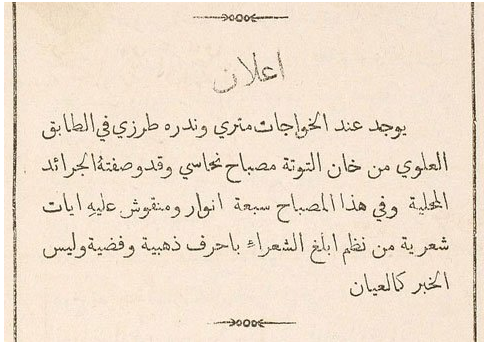 اعلان
يوجد عند الخواجات متري وندره طرزي في الطابق
العلوي من خان التوتة مصباح نحاسي وقد وصفتهُ الجرائد
المحلية وفي هذا المصباح سبعة انوار ومنقوش عليهِ ايات
شعرية من نظم ابلغ الشعراءِ باحرف ذهبية وفضية وليس
الخبر كالعيان